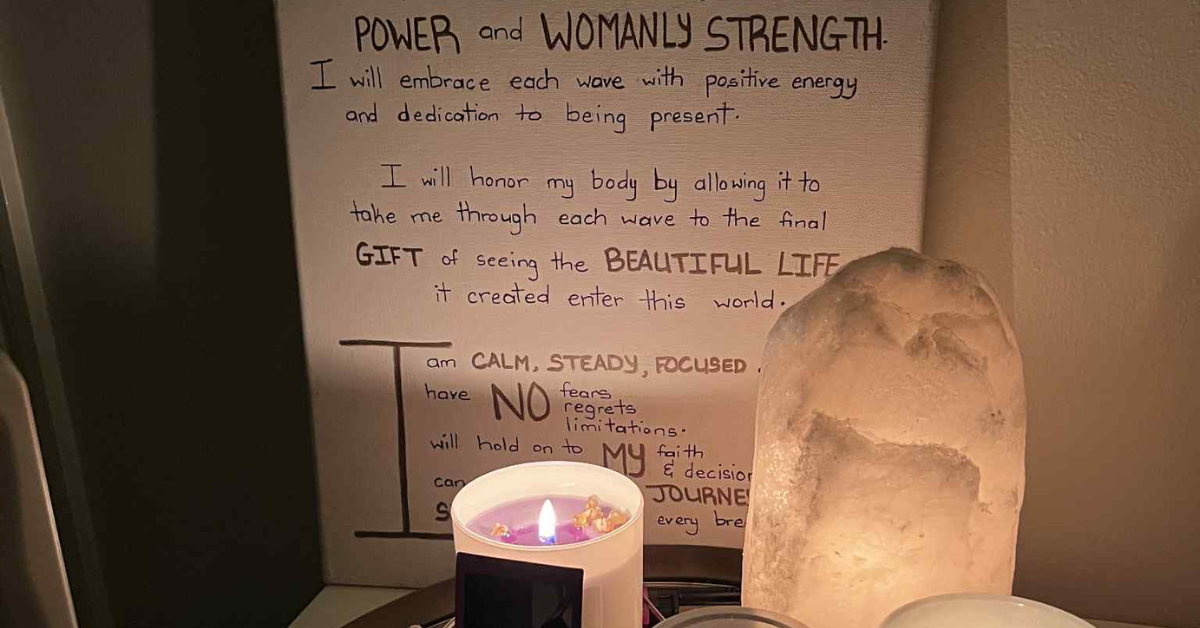 POWER and WOMANLY STRENGTH.
I will embrace each wave with positive energy
and dedication to being present.
I will honor my body by allowing it to
take me through each wave to the final
GIFT of seeing the BEAUTIFUL LIFE
it created enter this world.
I am CALM, STEADY, FOCUSED.
have NO fears
regrets
limitations.
will hold on to MY faith
& decision
can
JOURNE
every bre